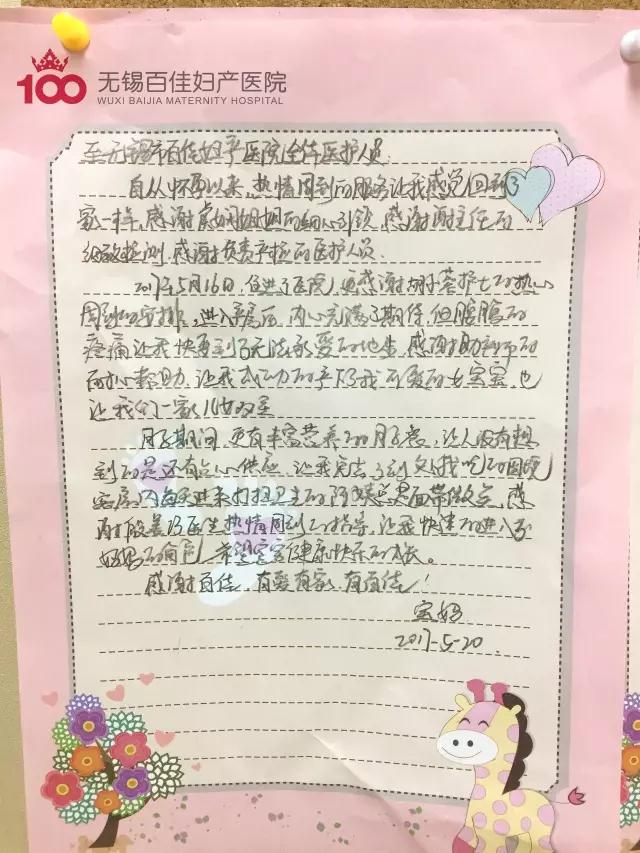 100 无锡百佳妇产医院
WUXI BAIJIA MATERNITY HOSPITAL
至无锡市百佳妇产医院全体医护人员
自从怀孕以来,热情周到的服务让我感觉回到了
家一样,感谢姐姐的细心引领,感谢谢主任的
细致检测,感谢负责产检的医护人员.
2017年5月16日,住进了医院,更感谢胡子蓉护士的热心
周到的安排,进入产房后,内心充满了期待,但腹腹的
疼痛让我快要到了无法承受的地步,感谢助产师的
耐心帮助,让我成功的产下了我可爱的女宝宝,也
让我们一家儿女双全
月子期间,更有丰富营养的月子餐,让人没有想
到的是还有点心供应,让我完
房内每天进来打扫卫生的阿姨总是面带微笑,感
谢医生热情周到的指导,让我快速的进入了
妈妈的角色,希望宝宝健康快乐的成长。
感谢百佳,有爱有家,有百佳!
宝妈
2017-5-20